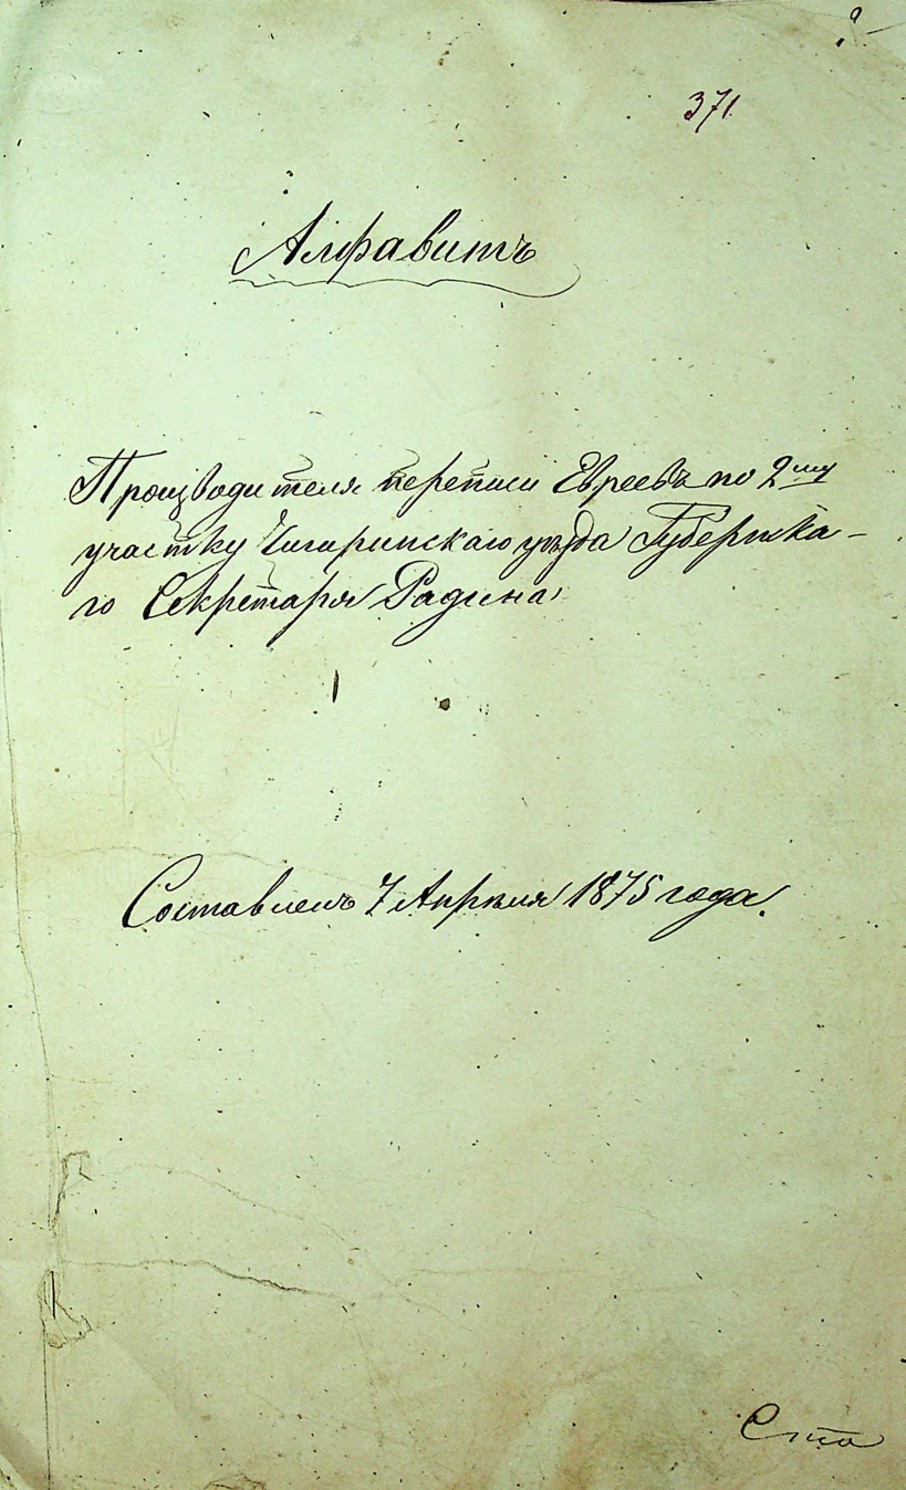 371.
Алфавитъ
Производителя переписи Евреевъ по 2му
участку Чигиринскаго уѣзда Губернска-
го Секретаря Радина
Составленъ 7 Апрѣля 1875 года.